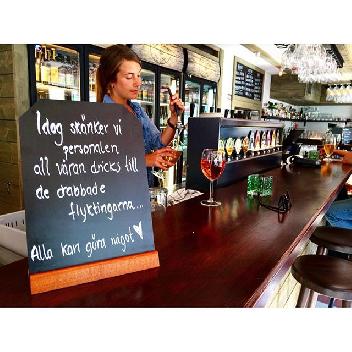 Idag skänker vi
personalen
all våran dricks till
de drabbade
flyktingarna...
Alla kan göra något